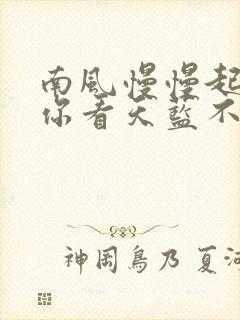 南風慢慢起
你看天藍不
神岡鳥乃 夏河